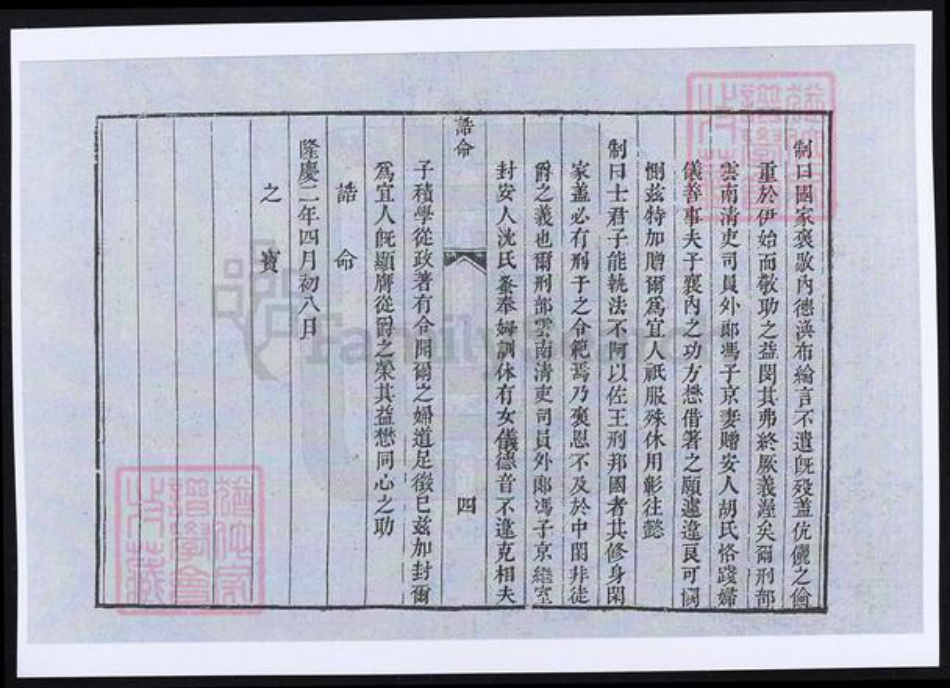 制曰國家褒敭內德渙布綸言不遺旣歿蓋伉儷之倫
重於伊始而敬助之益閔其弗終厥義渥矣爾刑部
雲南清吏司員外郎馮子京妻贈安人胡氏恪踐婦
儀善事夫子襄內之功方懋借箸之願遽違良可憫
惻茲特加贈爾爲宜人祇服殊休用彰往懿
制曰士君子能執法不阿以佐王刑邦國者其修身閑
家蓋必有刑于之令範焉乃褒恩不及於中閨非從
爵之義也爾刑部雲南清吏司員外郎馮子京繼室
封安人沈氏夤奉姆訓休有女儀德音不違克相夫
誥命
四
子積學從政著有令聞爾之婦道足徵已茲加封爾
爲宜人旣顯膺從爵之榮其益懋同心之助
誥命
隆慶二年四月初八日
之寶
FamilySearch